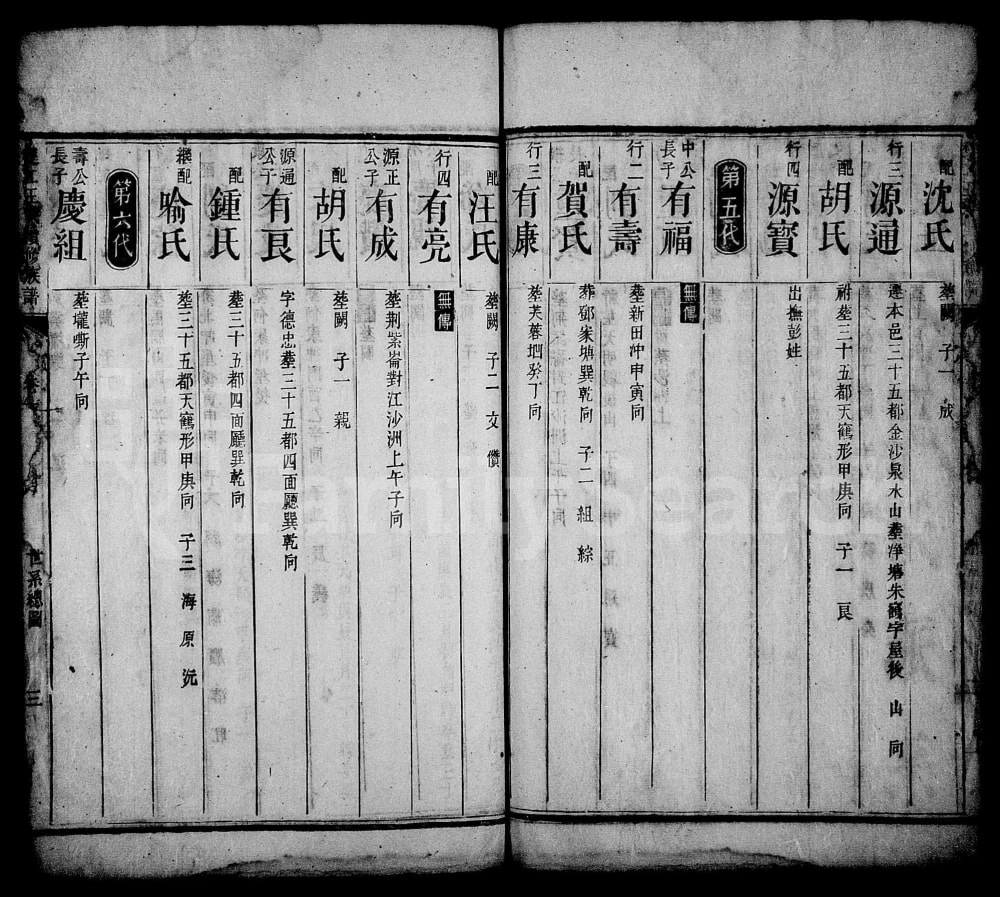 配沈氏 塟闕 子一 成
行三源通 遷本邑三十五都金沙泉水山塟淨塘朱鶴字屋後 山 同
配胡氏 祔塟三十五都天鶴形甲庚同 子一 艮
行四源寶 出撫彭姓
第五代
中公長子有福 無傳
行二有壽 塟新田沖申寅同
配賀氏 葬鄧家塘巽乾同 子二 組 綜
行三有康 塟芙蓉堋癸丁同
配汪氏 塟闕 子二 文 儹
行四有亮 無傳
源正公子有成 塟荆紫崙對江沙洲上午子同
配胡氏 塟闕 子一 親
源通公子有艮 字德忠塟三十五都四面廳巽乾同
配鍾氏 塟三十五都四面廳巽乾同
繼配喻氏 塟三十五都天鶴形甲庚同 子三 海 原 沅
第六代
壽公長子慶組 塟壠嘶子午同
族譜
世系總圖
三